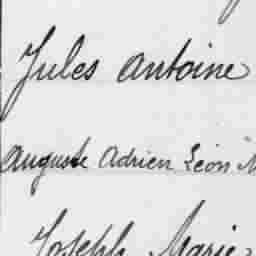 Jules Antoine
Auguste Adrien Léon
Joseph Marie